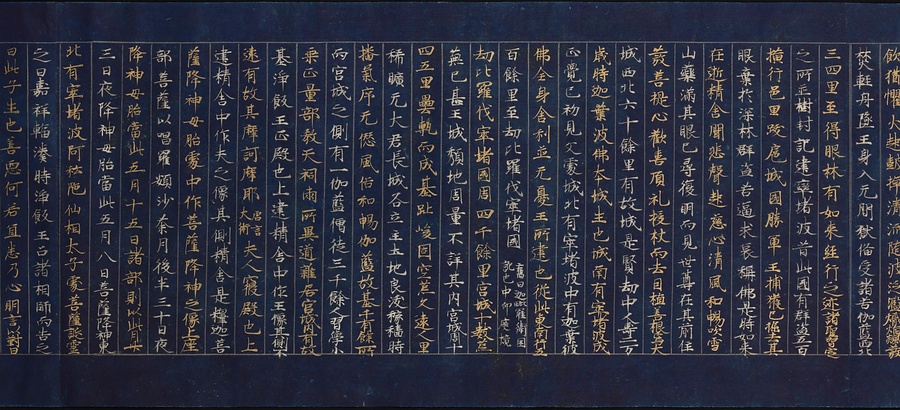 焚輕舟墜王身入无間獄備受諸苦伽藍西北
三四里至得眼林有如來經行之迹諸聖習定
之所並樹封記建窣堵波昔此國有群盜五百
橫行邑里跋扈城國勝軍王捕獲已抉去其
眼棄於深林群盜苦逼求哀稱佛是時如來
在逝精舍聞悲聲起慈心清風和暢吹雪
山藥滿其眼已尋得復明而見世尊在其前住
發菩提心歡喜頂礼投杖而去因植善根焉大
城西北六十餘里有故城是賢劫中人壽二万
歲時迦葉波佛本城生也城南有窣堵波成
正覺已初見父處城北有窣堵波中有迦葉波
佛全身舍利並无憂王所建也從此東南行五
百餘里至劫比羅伐窣堵國 舊曰迦毗羅衛國訛也中印度境
劫比羅伐窣堵國周四千餘里宮城十數荒
蕪已甚王城頹地周量不詳其内宮城周十
四五里壘甎而成基趾峻固空荒久遠人里
稀曠无大君長城各立主土地良沃稼穡時
播氣序无愆風俗和暢伽藍故基千有餘所
而宮城之側有一伽藍僧徒三千餘人習學小
乘正量部教天祠兩所異道雜居宮城内有故
基淨飯王正殿也上建精舍中作王像其側不
遠有故基摩訶摩耶 唐言大術 夫人寢殿也上
建精舍中作夫之像其側精舍是釋迦菩
薩降神母胎處中作菩薩降神之像上座
部菩薩以唱羅頞沙荼月後半三十日夜
降神母胎當此五月十五日諸部則以此月廿
三日夜降神母胎當此五月八日菩薩降神東
北有窣堵波阿私陀仙相太子處菩薩誕靈
之日嘉祥輻湊時淨飯王召諸相師而告之
曰此子生也善惡何若宜悉乃心明言以對曰